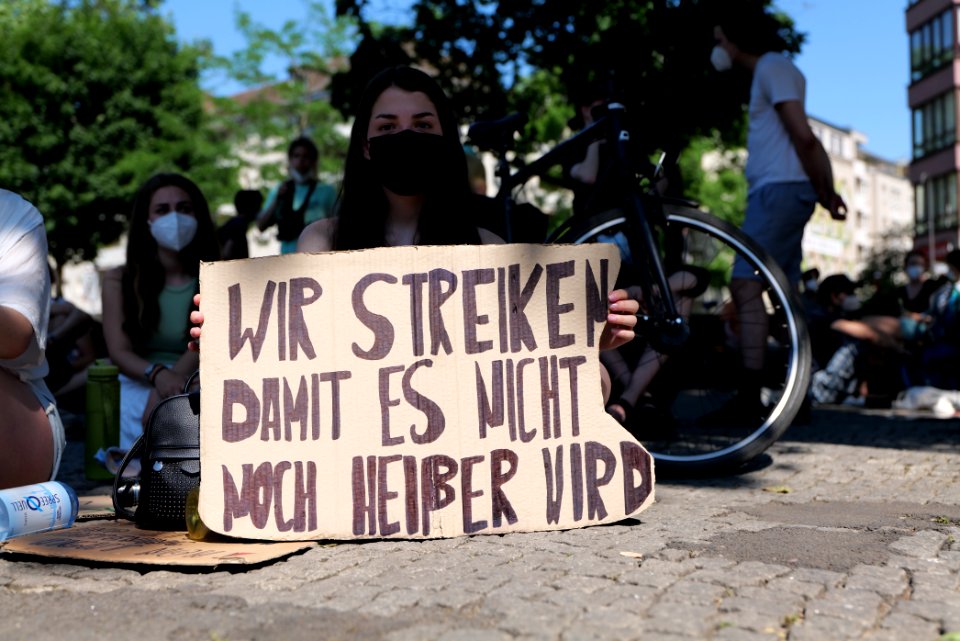 WIR STREIKEN
DAMIT ES NICHT
NOCH HEIßER WIRD
SPREE QUELL